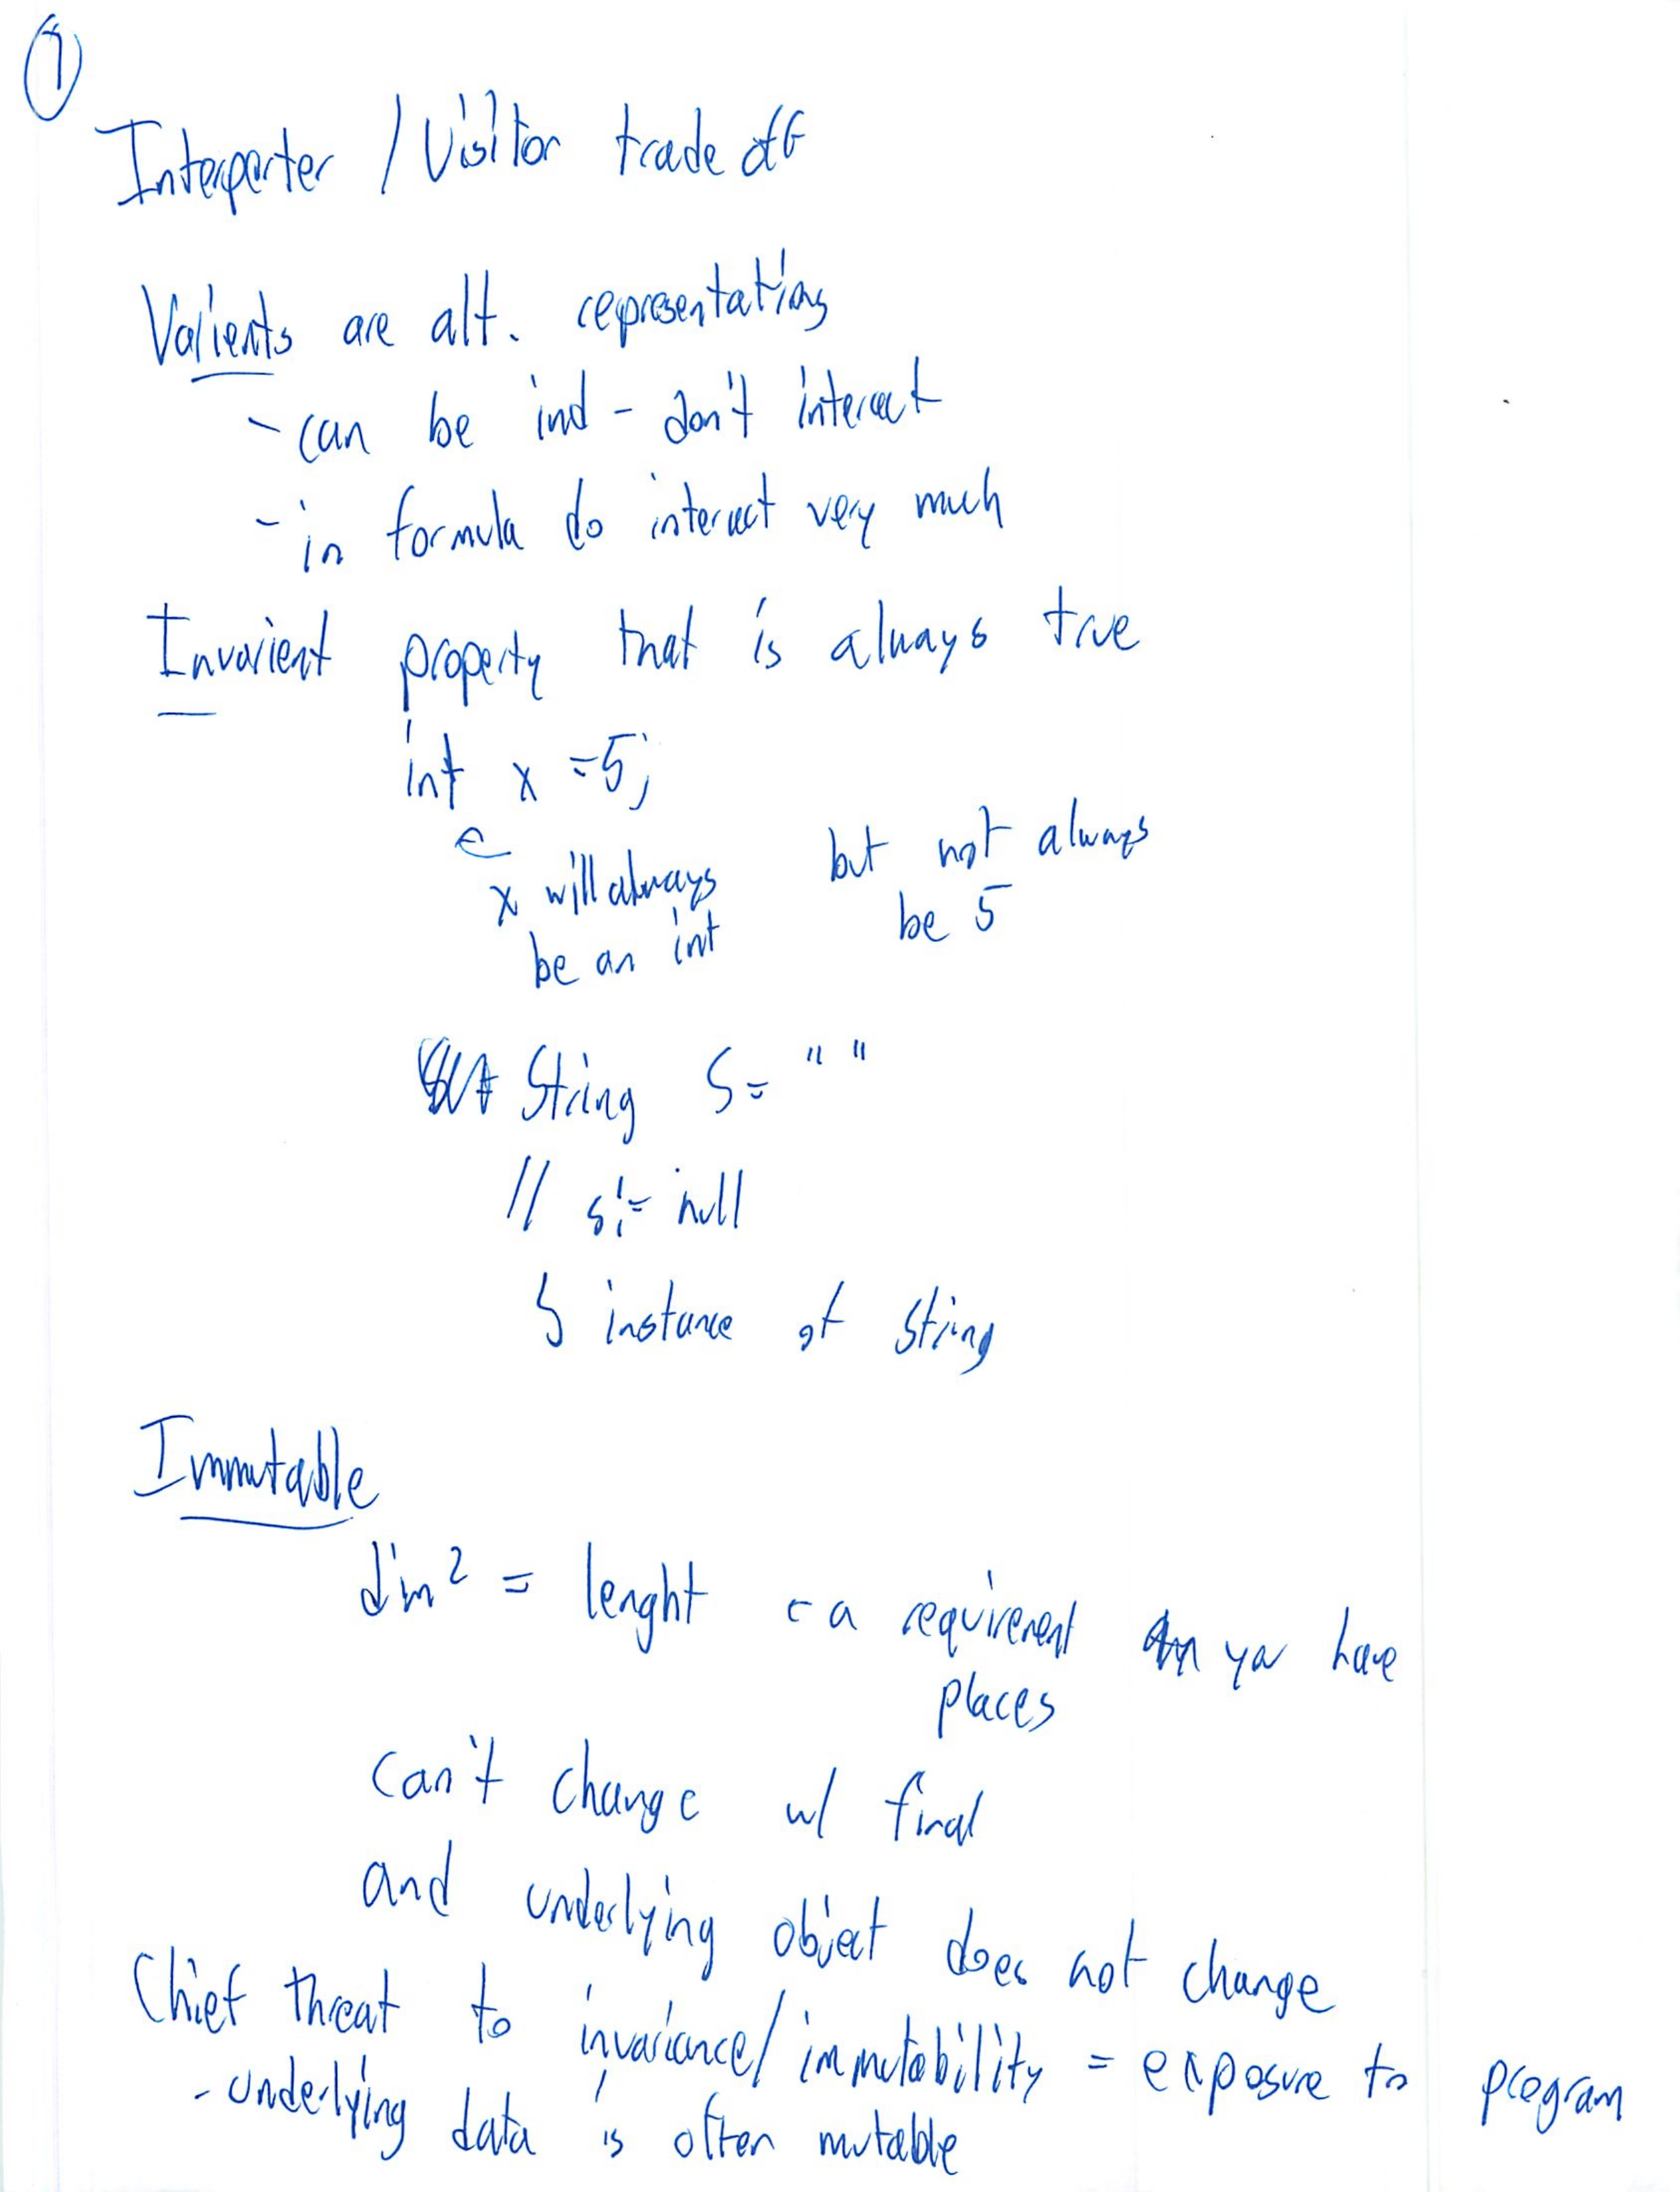 7
Interperter / Visitor trade off
Varients are alt. representations
- can be ind - don't interact
- in formula do interact very much
Invarient property that is always true
int x = 5;
x will always but not always
be an int be 5
String S = " "
// s != null
S instance of String
Immutable
dim² = lenght - a requirement you have
places
can't change w/ final
and underlying object does not change
Chief threat to invariance/immutability = exposure to program
- underlying data is often mutable